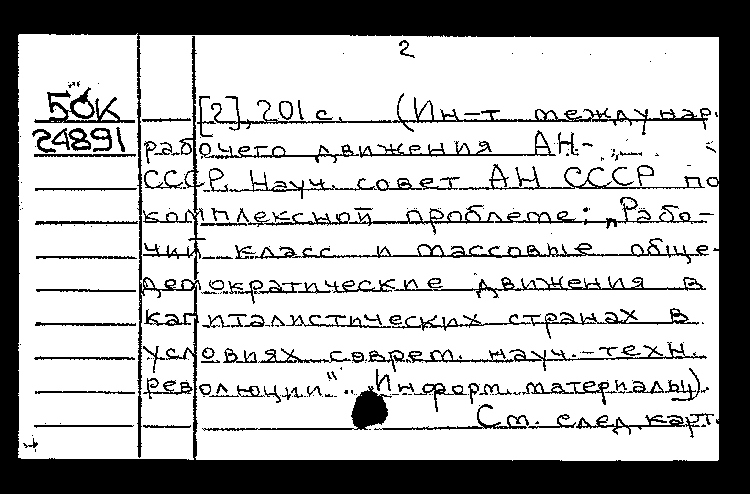 2
50К [2], 201 с. (Ин-т междунар.
24891 рабочего движения АН-
СССР, Науч. совет АН СССР по
комплексной проблеме: „Рабо-
чий класс и массовые обще-
демократические движения в
капиталистических странах в
условиях соврем. науч.-техн.
революции“. „Информ. материалы).
См. след. карт.